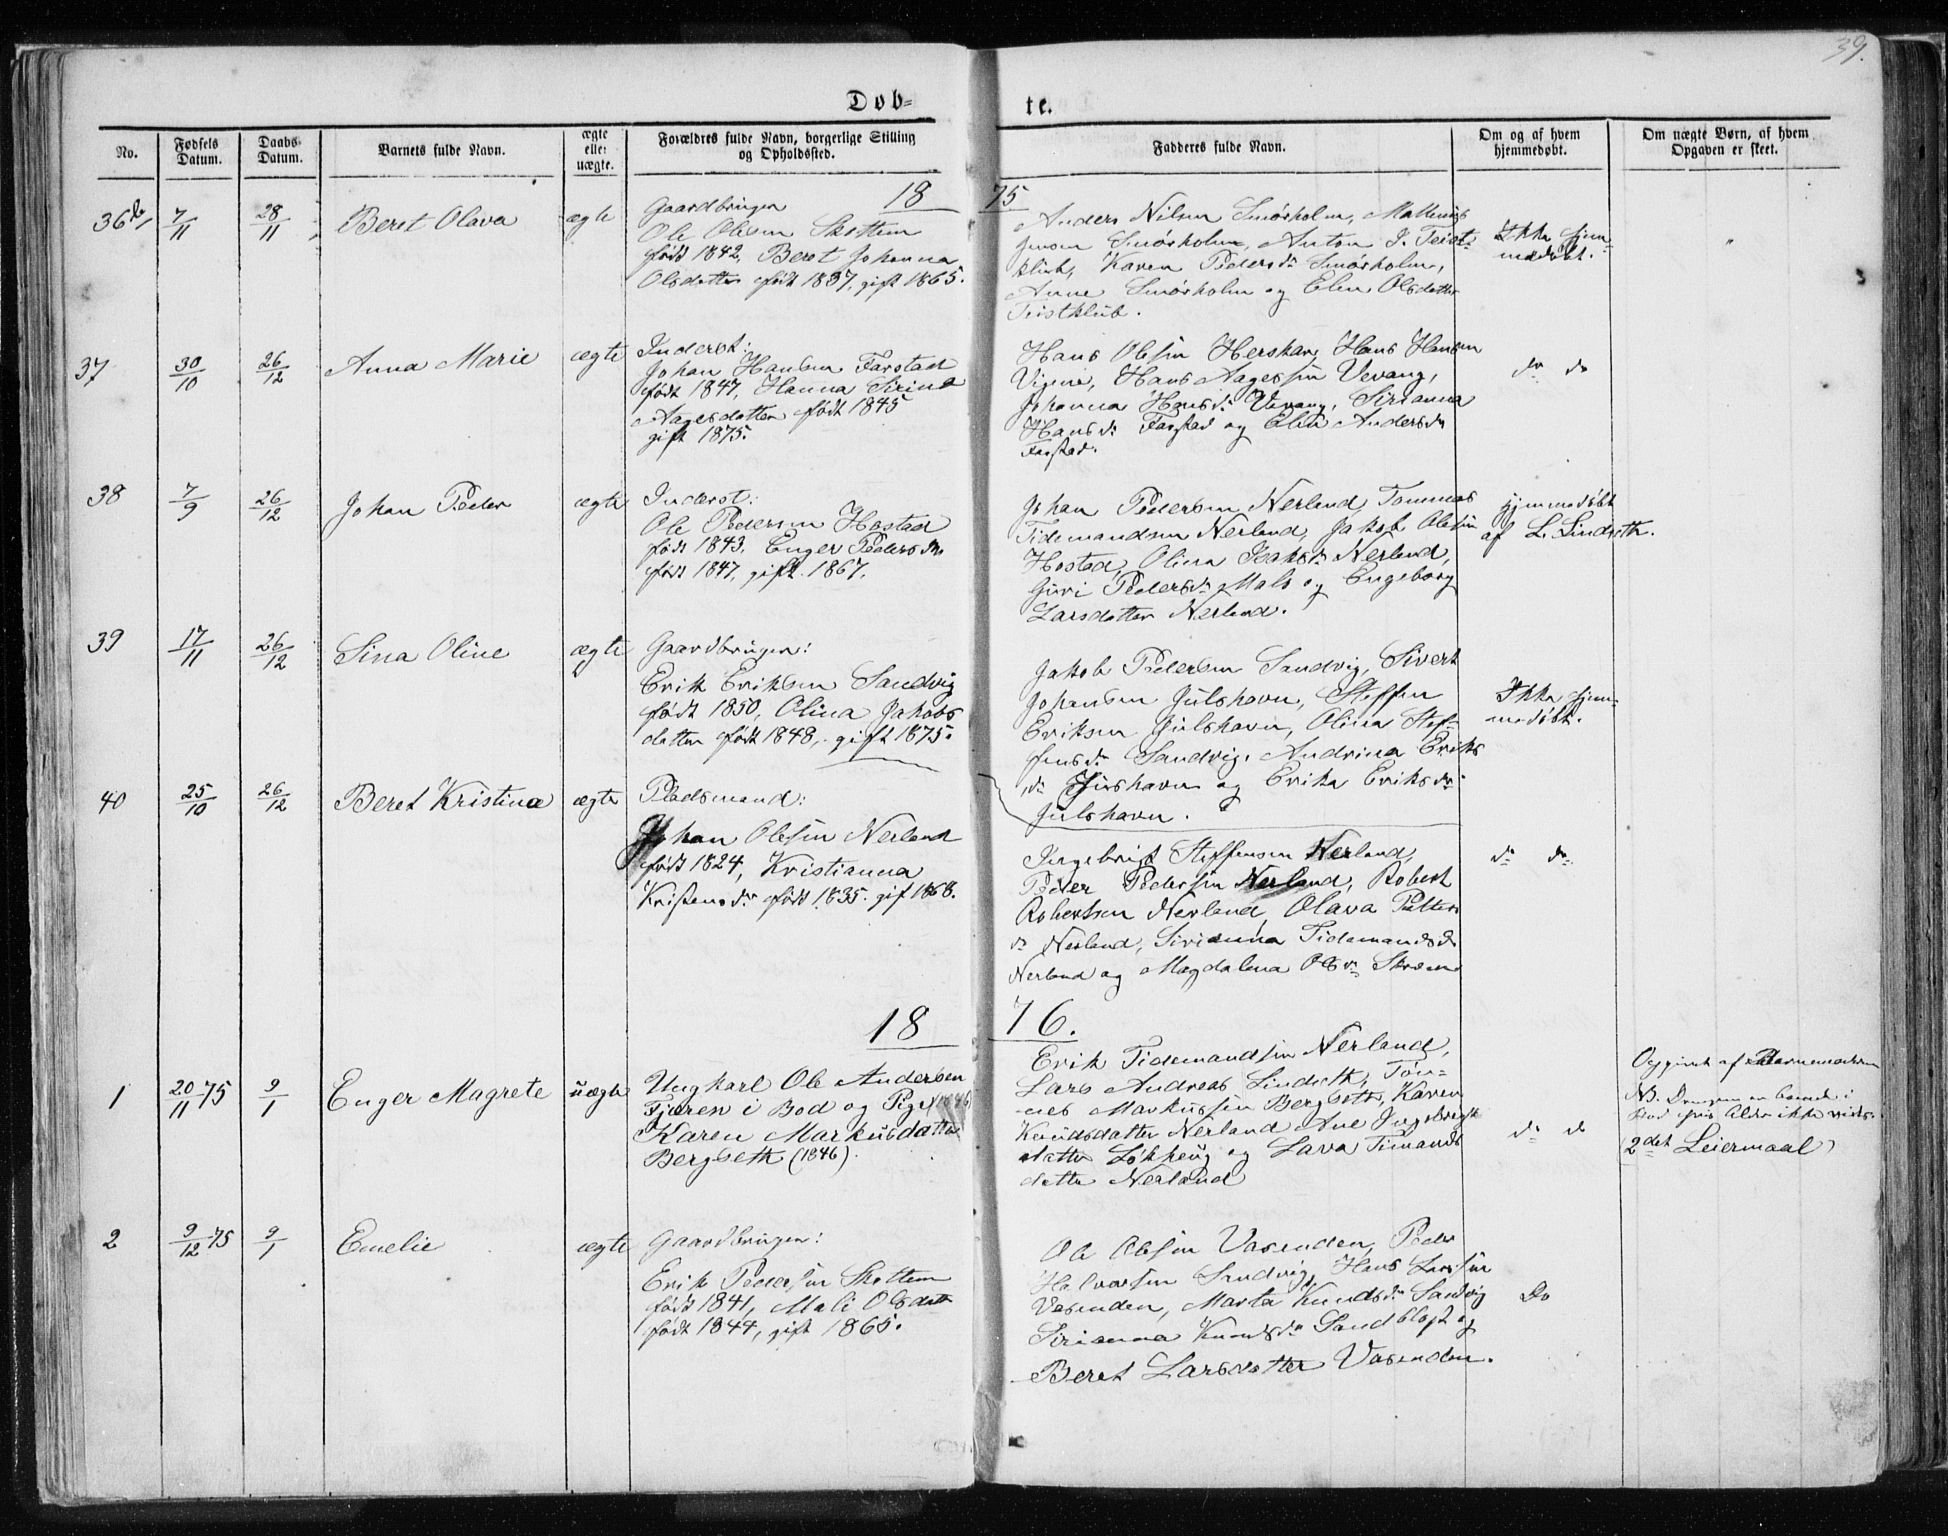 39.
Døb-
te.
No.
Fødsels Datum.
Daabs Datum.
Barnets fulde Navn.
ægte eller uægte.
Forældres fulde Navn, borgerlige Stilling og Opholdssted.
Fadderes fulde Navn.
Om og af hvem hjemmedøbt.
Om uægte Børn, af hvem Opgaven er skeet.
18 75
36 7/11 28/11 Beret Olava ægte
Gaardbruger
Ole Olesen Skottem
født 1842, Beret Johanna
Olsdatter født 1837, gift 1865.
Anders Nilsen Smørholm, Mattenus
Jensen Smørholm, Anton J. Teist-
klub, Karen Pedersdr Smørholm,
Anne Smørholm og Elen Olsdatter
Teistklub.
Ikke hjem-
medøbt.
"
37 30/10 26/12 Anna Marie ægte
Inderst:
Johan Hansen Farstad
født 1847, Hanna Sirina
Aagesdatter født 1845
gift 1875.
Hans Olesen Herskar, Hans Hansen
Vigen, Hans Aagessen Vevang,
Johanna Hansdr Vevang, Sirianna
Hansdr Farstad og Elen Andersdr
Farstad.
do do
38 7/9 26/12 Johan Peder ægte
Inderst:
Ole Pedersen Hostad
født 1843, Enger Pedersdr
født 1847, gift 1867.
Johan Pedersen Nerland, Tommas
Tidemandsen Nerland, Jakob Olesen
Hostad, Olina Isaksdr Nerland,
Guri Pedersdr Male og Engeborg
Larsdatter Nerland.
hjemmedøbt
af L. Lindseth.
39 17/11 26/12 Sina Oline ægte
Gaardbruger:
Erik Eriksen Sandvig
født 1850, Olina Jakobs
datter født 1848, gift 1875.
Jakob Pedersen Sandvig, Sivert
Johansen Julshavn, Steffen
Eriksen Julshavn, Olina Stef-
fensdr Sandvig, Andrina Eriks
dr Julshavn og Erika Eriksdr
Julshavn.
Ikke hjem-
medøbt.
40 25/10 26/12 Beret Kristina ægte
Pladsmand:
Johan Olesen Nerland
født 1824, Kristianna
Kristensdr født 1835. gif 1868.
Ingebrigt Steffensen Nerland,
Peder Pedersen Nerland, Robert
Robertsen Nerland, Olava Petters
dr Nerland, Sirianna Tidemandsdr
Nerland og Magdalena Olsdr
do do
18 76.
1 20/11 75 9/1 Enger Magrete uægte
Ungkarl Ole Andersen
Tjøren i Bod og Pige (1846)
Karen Markusdatter
Bergseth (1846).
Erik Tidemandsen Nerland,
Lars Andreas Lindseth, Tøn-
nes Markussen Bergseth, Karen
Knudsdatter Nerland Ane Ingebrigt
datter Løkheug og Lava Timands
datter Nerland
do do
Opgivet af Barnemoderen
NB. Drengen er
Bod hvis Alder ikke vides.
(2det Leiermaal)
2 9/12 75 9/1 Emelie ægte
Gaardbruger:
Erik Pedersen Skottem
født 1841, Mali Olsdatt
født 1844, gift 1865.
Ole Olesen Vasenden, Peder
Halvorsen Sandvig, Hans Larssen
Vasenden, Marta Knudsdr Sandvig
Sirianna Knudsdr Sandblost og
Beret Larsdatter Vasenden.
Do